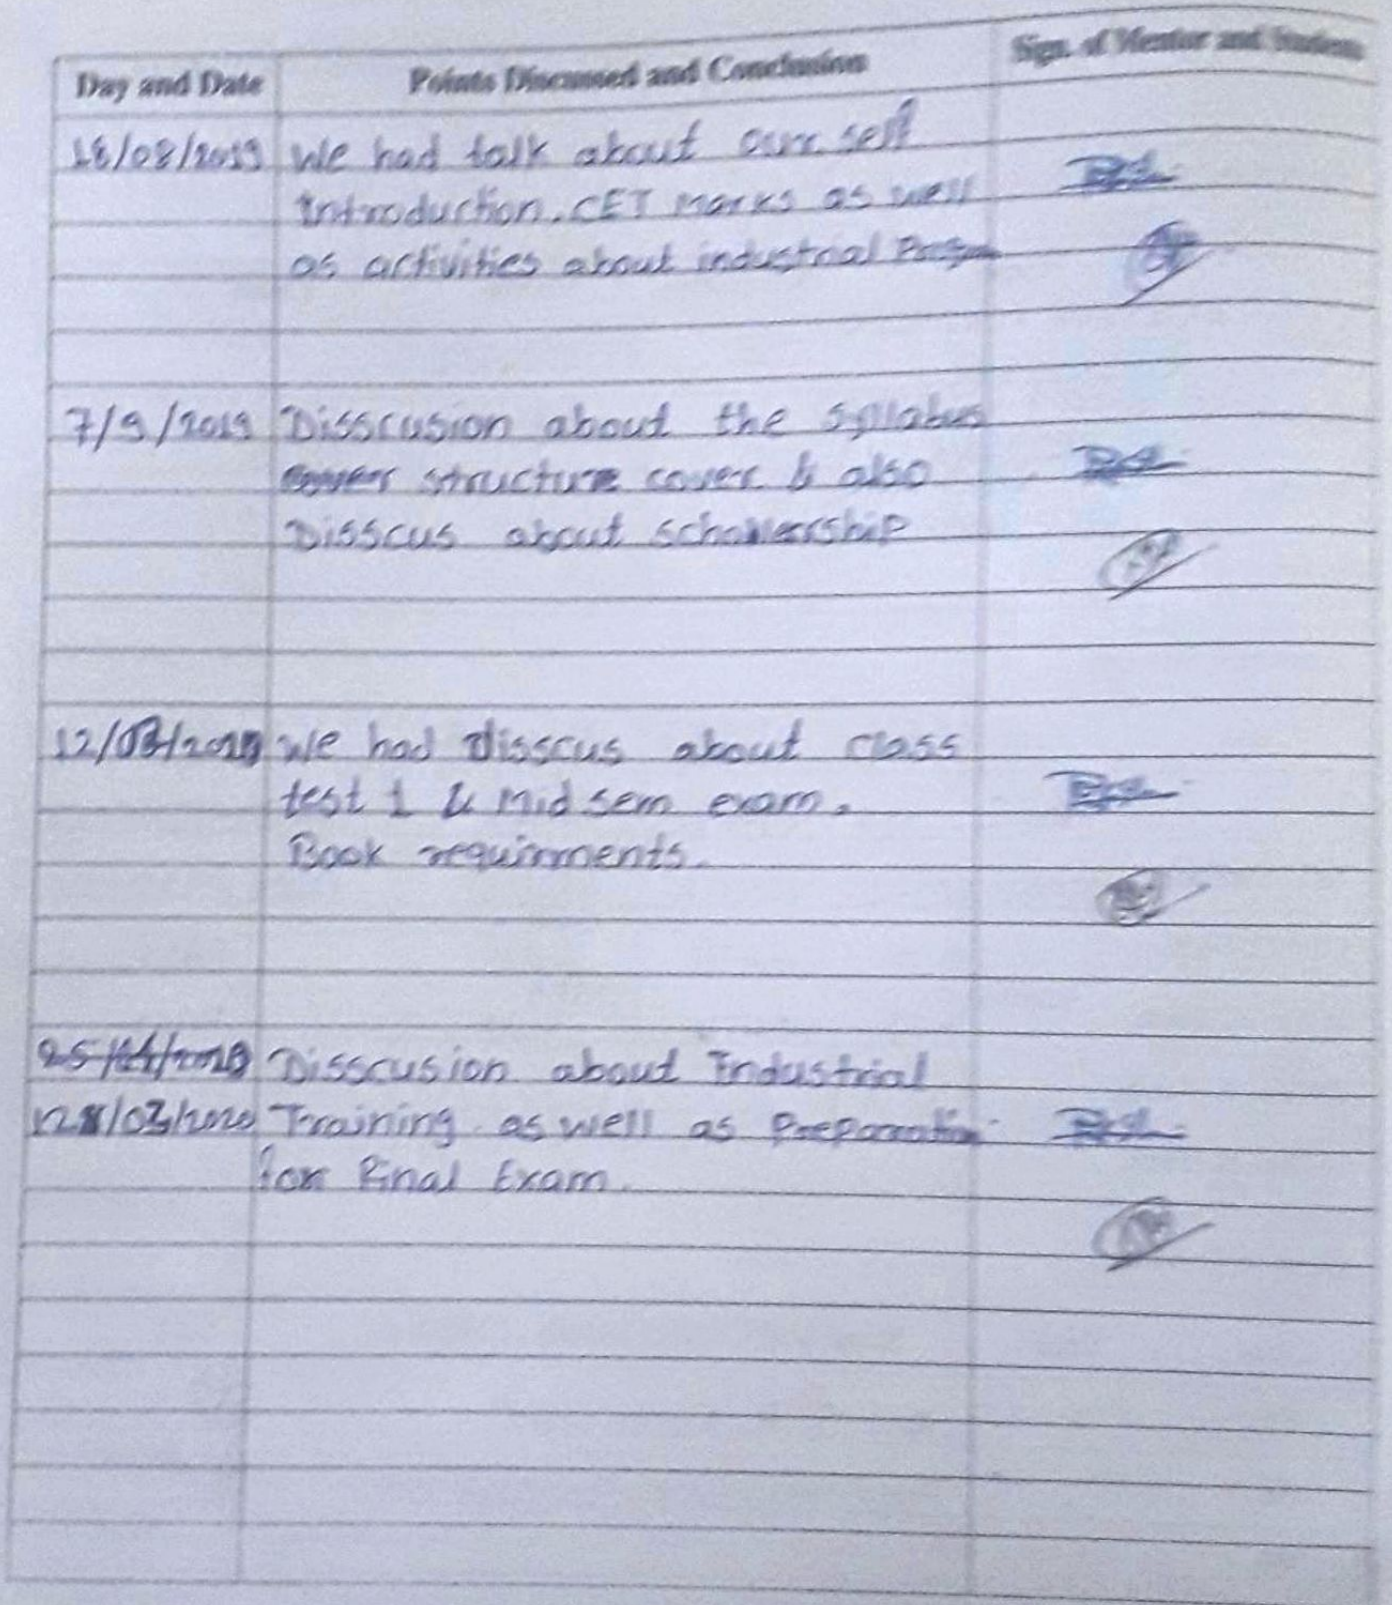 Day and Date Points Discussed and Conclusion Sign. of Mentor and Student
18/08/2019 We had talk about our self
Introduction. CET marks as well
as activities about industrial
7/9/2019 Disscusion about the syllabus
structure cover & also
Disscus about
We had Disscus about class
test 1 & Mid sem exam.
Book requirments.
Disscusion about Industrial
Training as well as Preparation
for Final Exam.